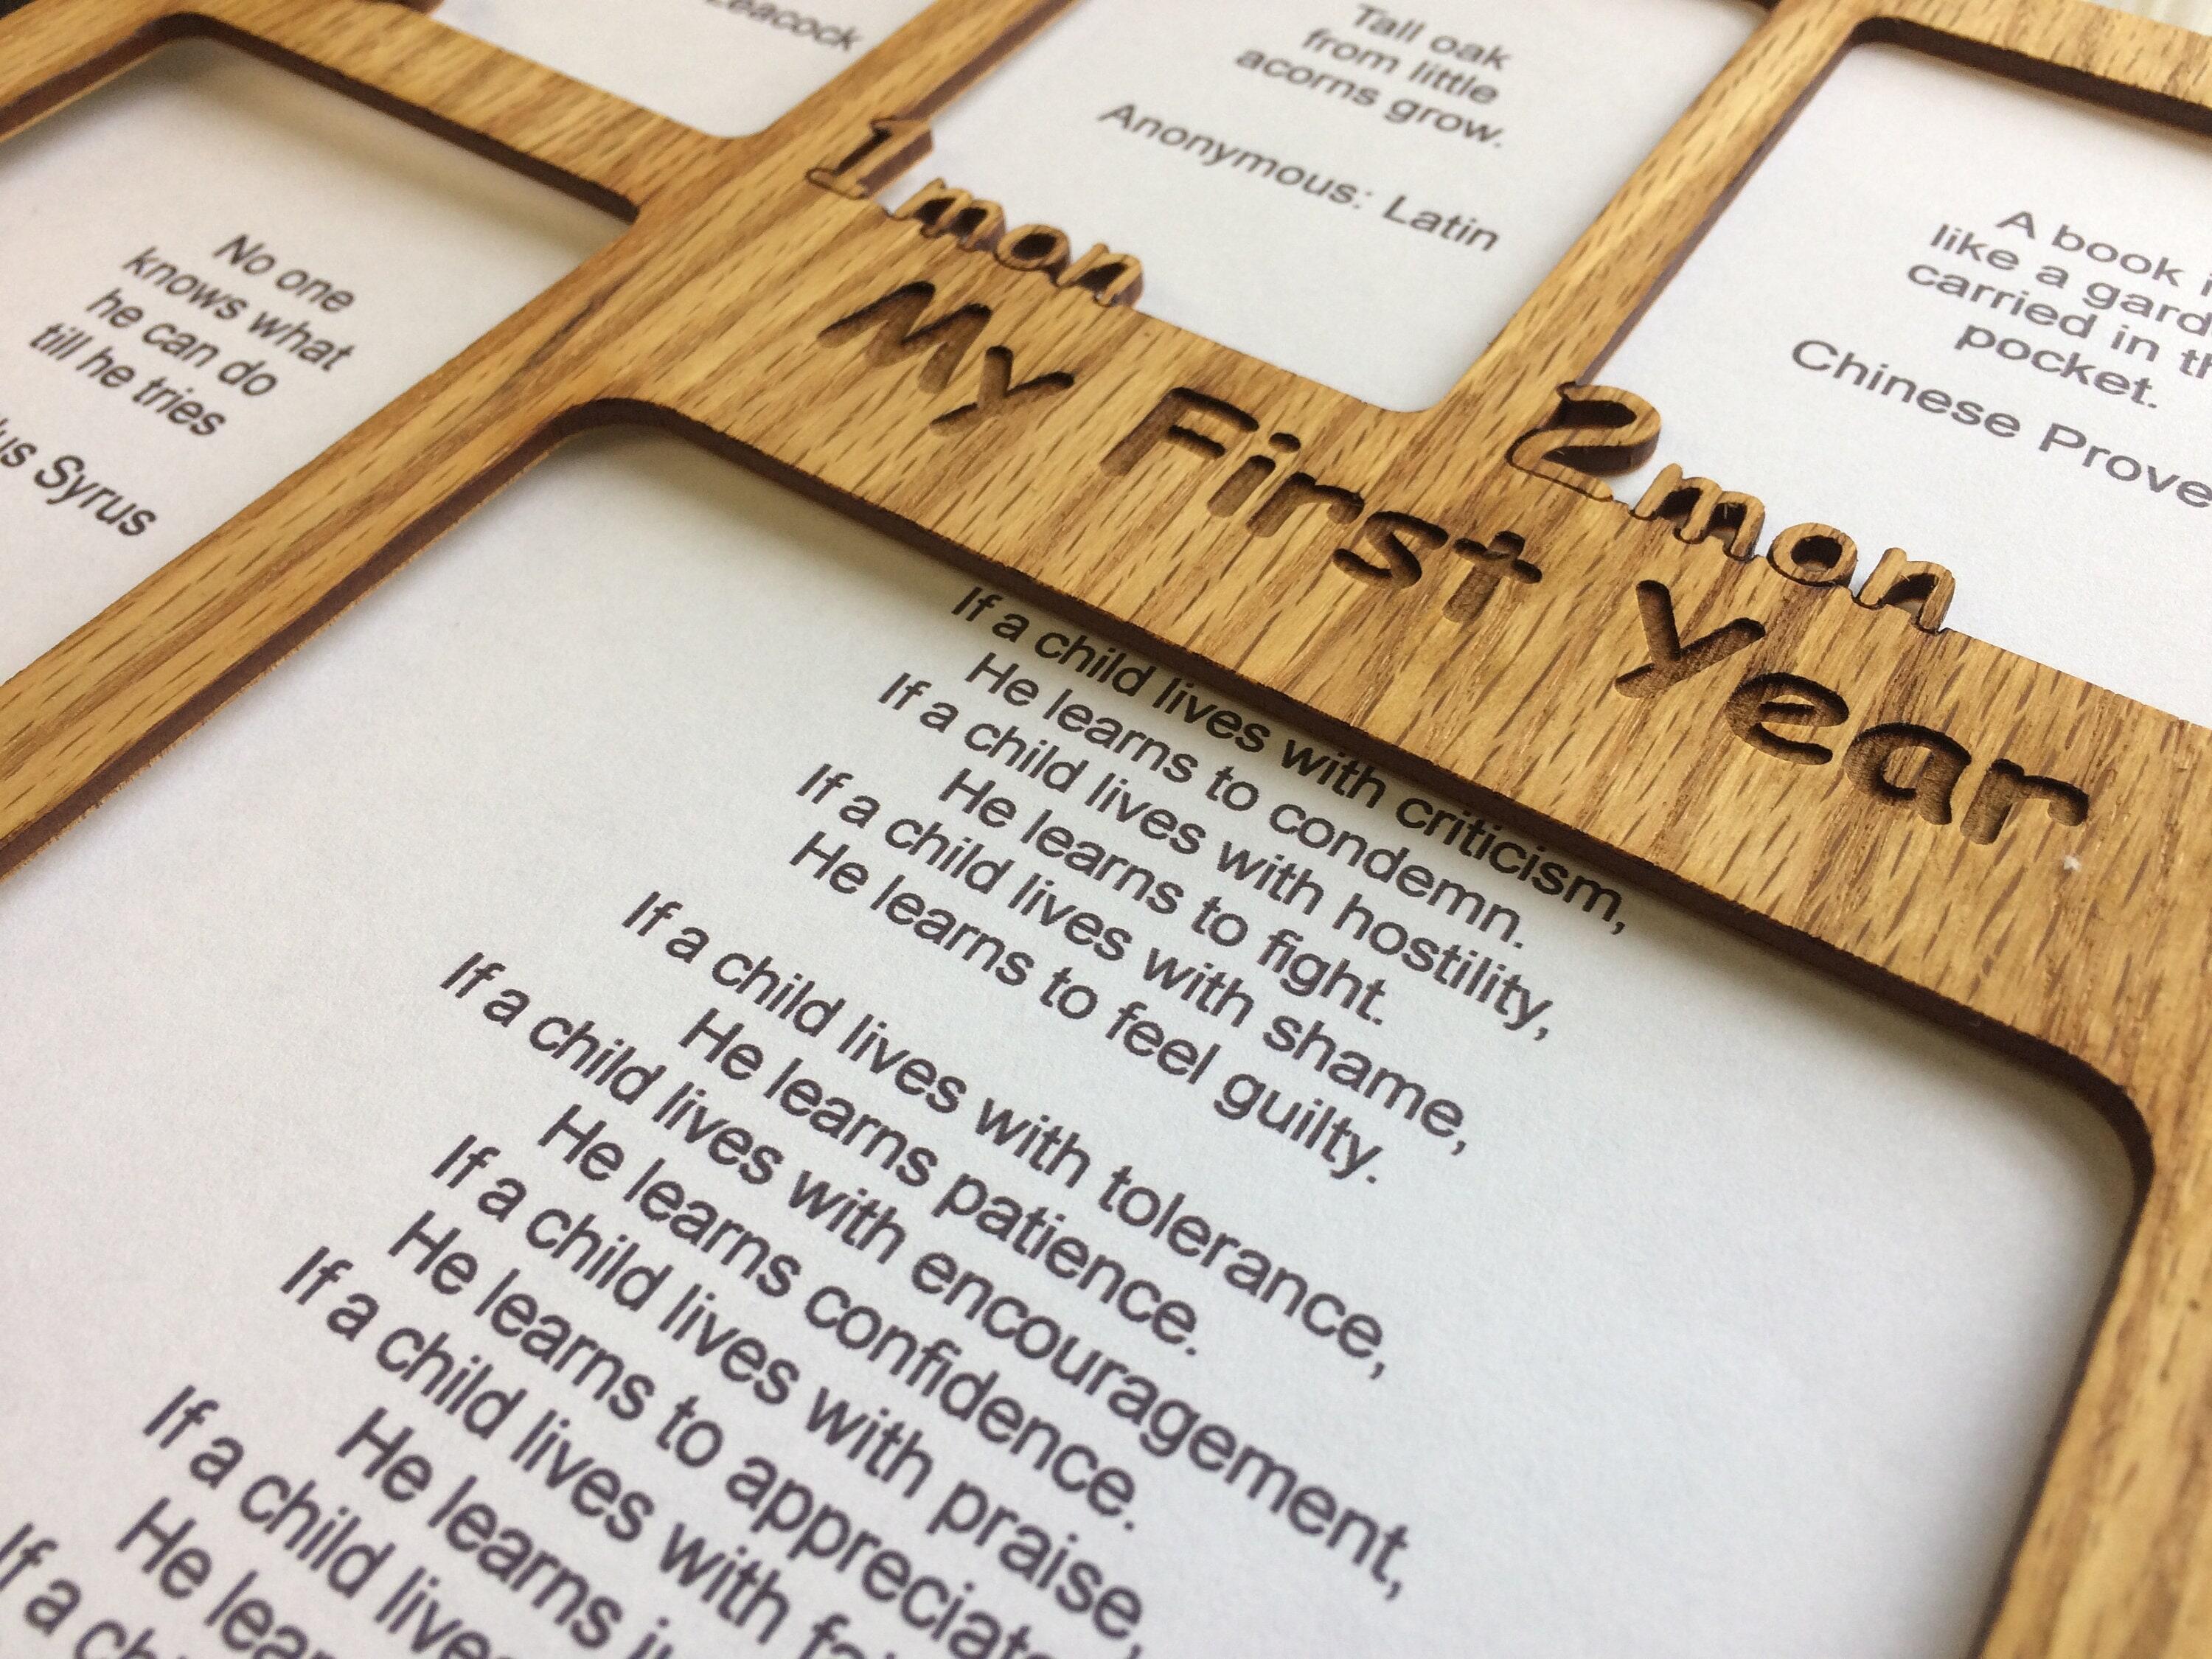 Leacock
Tall oak
from little
acorns grow.
Anonymous: Latin
A book
like a
carried in
pocket.
Chinese
No one
knows what
he can do
till he tries
Syrus
1 mon
2 mon
My First Year
If a child lives with criticism,
He learns to condemn.
If a child lives with hostility,
He learns to fight.
If a child lives with shame,
He learns to feel guilty.
If a child lives with tolerance,
He learns patience.
If a child lives with encouragement,
He learns confidence.
If a child lives with praise,
He learns to appreciate
If a child lives with
He learns
If a child lives
He
If a